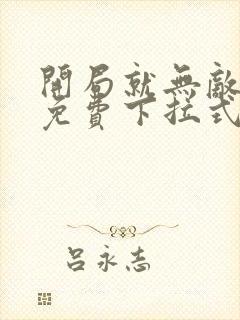 開局就無敵
免費下拉式
呂永志